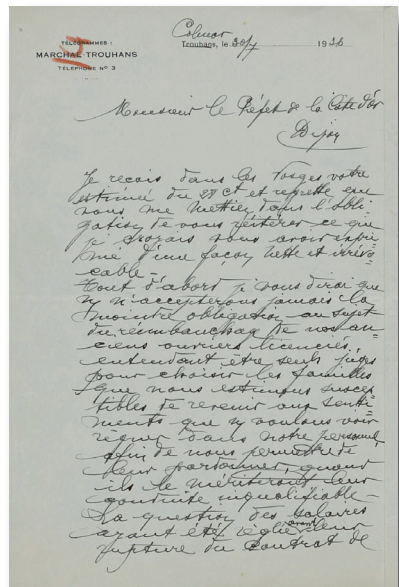 TÉLÉGRAMMES :
MARCHAL-TROUHANS
TÉLÉPHONE Nº 3
Colmar
Trouhans, le 30/7 1936
Monsieur le Préfet de la Côte d'Or
Dijon
Je reçois dans les Vosges votre
estimée du 28 ct et regrette que
vous me mettiez dans l'obli-
gation de vous réitérer ce que
je croyais vous avoir expri-
mé d'une façon nette et irrévo-
cable -
Tout d'abord je vous dirai que
n/ n'accepterons jamais la
moindre obligation au sujet
du réembauchage de nos an-
ciens ouvriers licenciés,
entendant être seuls juges
pour choisir les familles
que nous estimons suscep-
tibles de revenir aux senti-
ments que n/ voulons voir
régner dans notre personnel,
afin de nous permettre de
leur pardonner, quand
ils le mériteront leur
conduite inqualifiable -
La question des salaires
ayant été réglée avant leur
rupture du contrat de